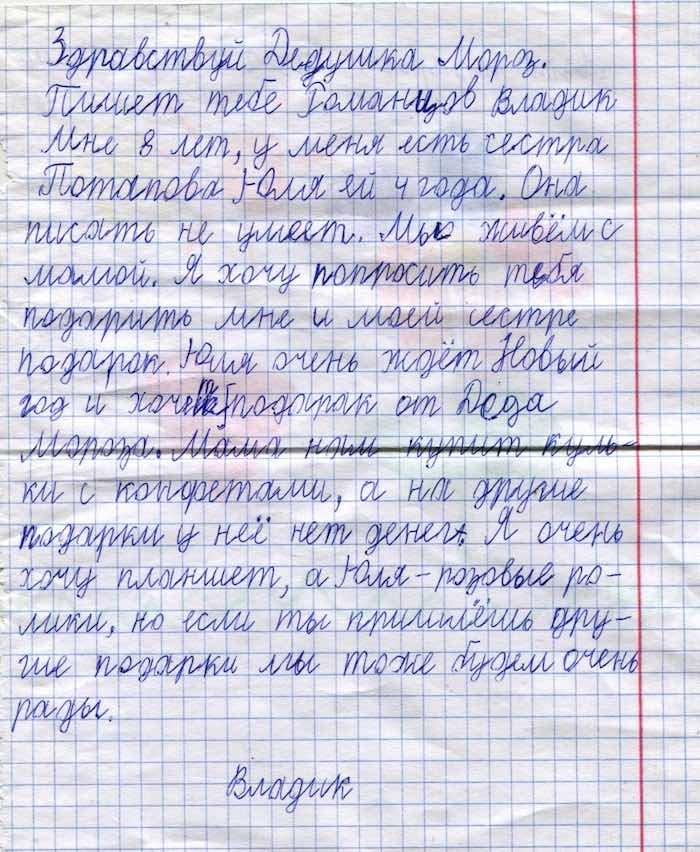 Здравствуй Дедушка Мороз.
Пишет тебе Романцов Владик
Мне 8 лет, у меня есть сестра
Потапова Юля ей 4 года. Она
писать не умеет. Мы живём с
мамой. Я хочу попросить тебя
подарить мне и моей сестре
подарок. Юля очень ждёт Новый
год и хочет подарок от Деда
Мороза. Мама нам купит куль-
ки с конфетами, а на другие
подарки у неё нет денег. Я очень
хочу планшет, а Юля - розовые ро-
лики, но если ты пришлёшь дру-
гие подарки мы тоже будем очень
рады.
Владик